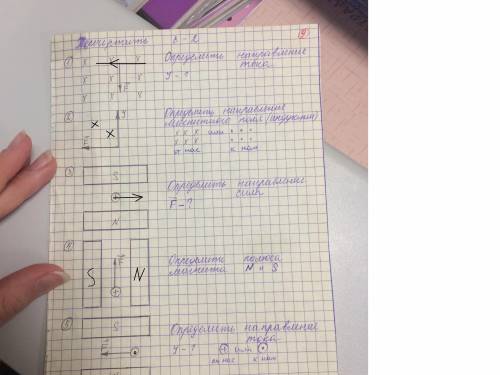 Начертить 1-2
①
x x
x x
x
F
Определить направление
тока
У - ?
②
У
x x
F
Определить направление
магнитного поля (индукции)
x x x или • • •
x x x • • •
от нас к нам
③
S
+
N
Определить направление
силы
F - ?
④
S
F
+
N
Определить полюса
магнита N и S
⑤
S
F
Определить направление
тока
У - ? ⊕ или ⊙
от нас к нам